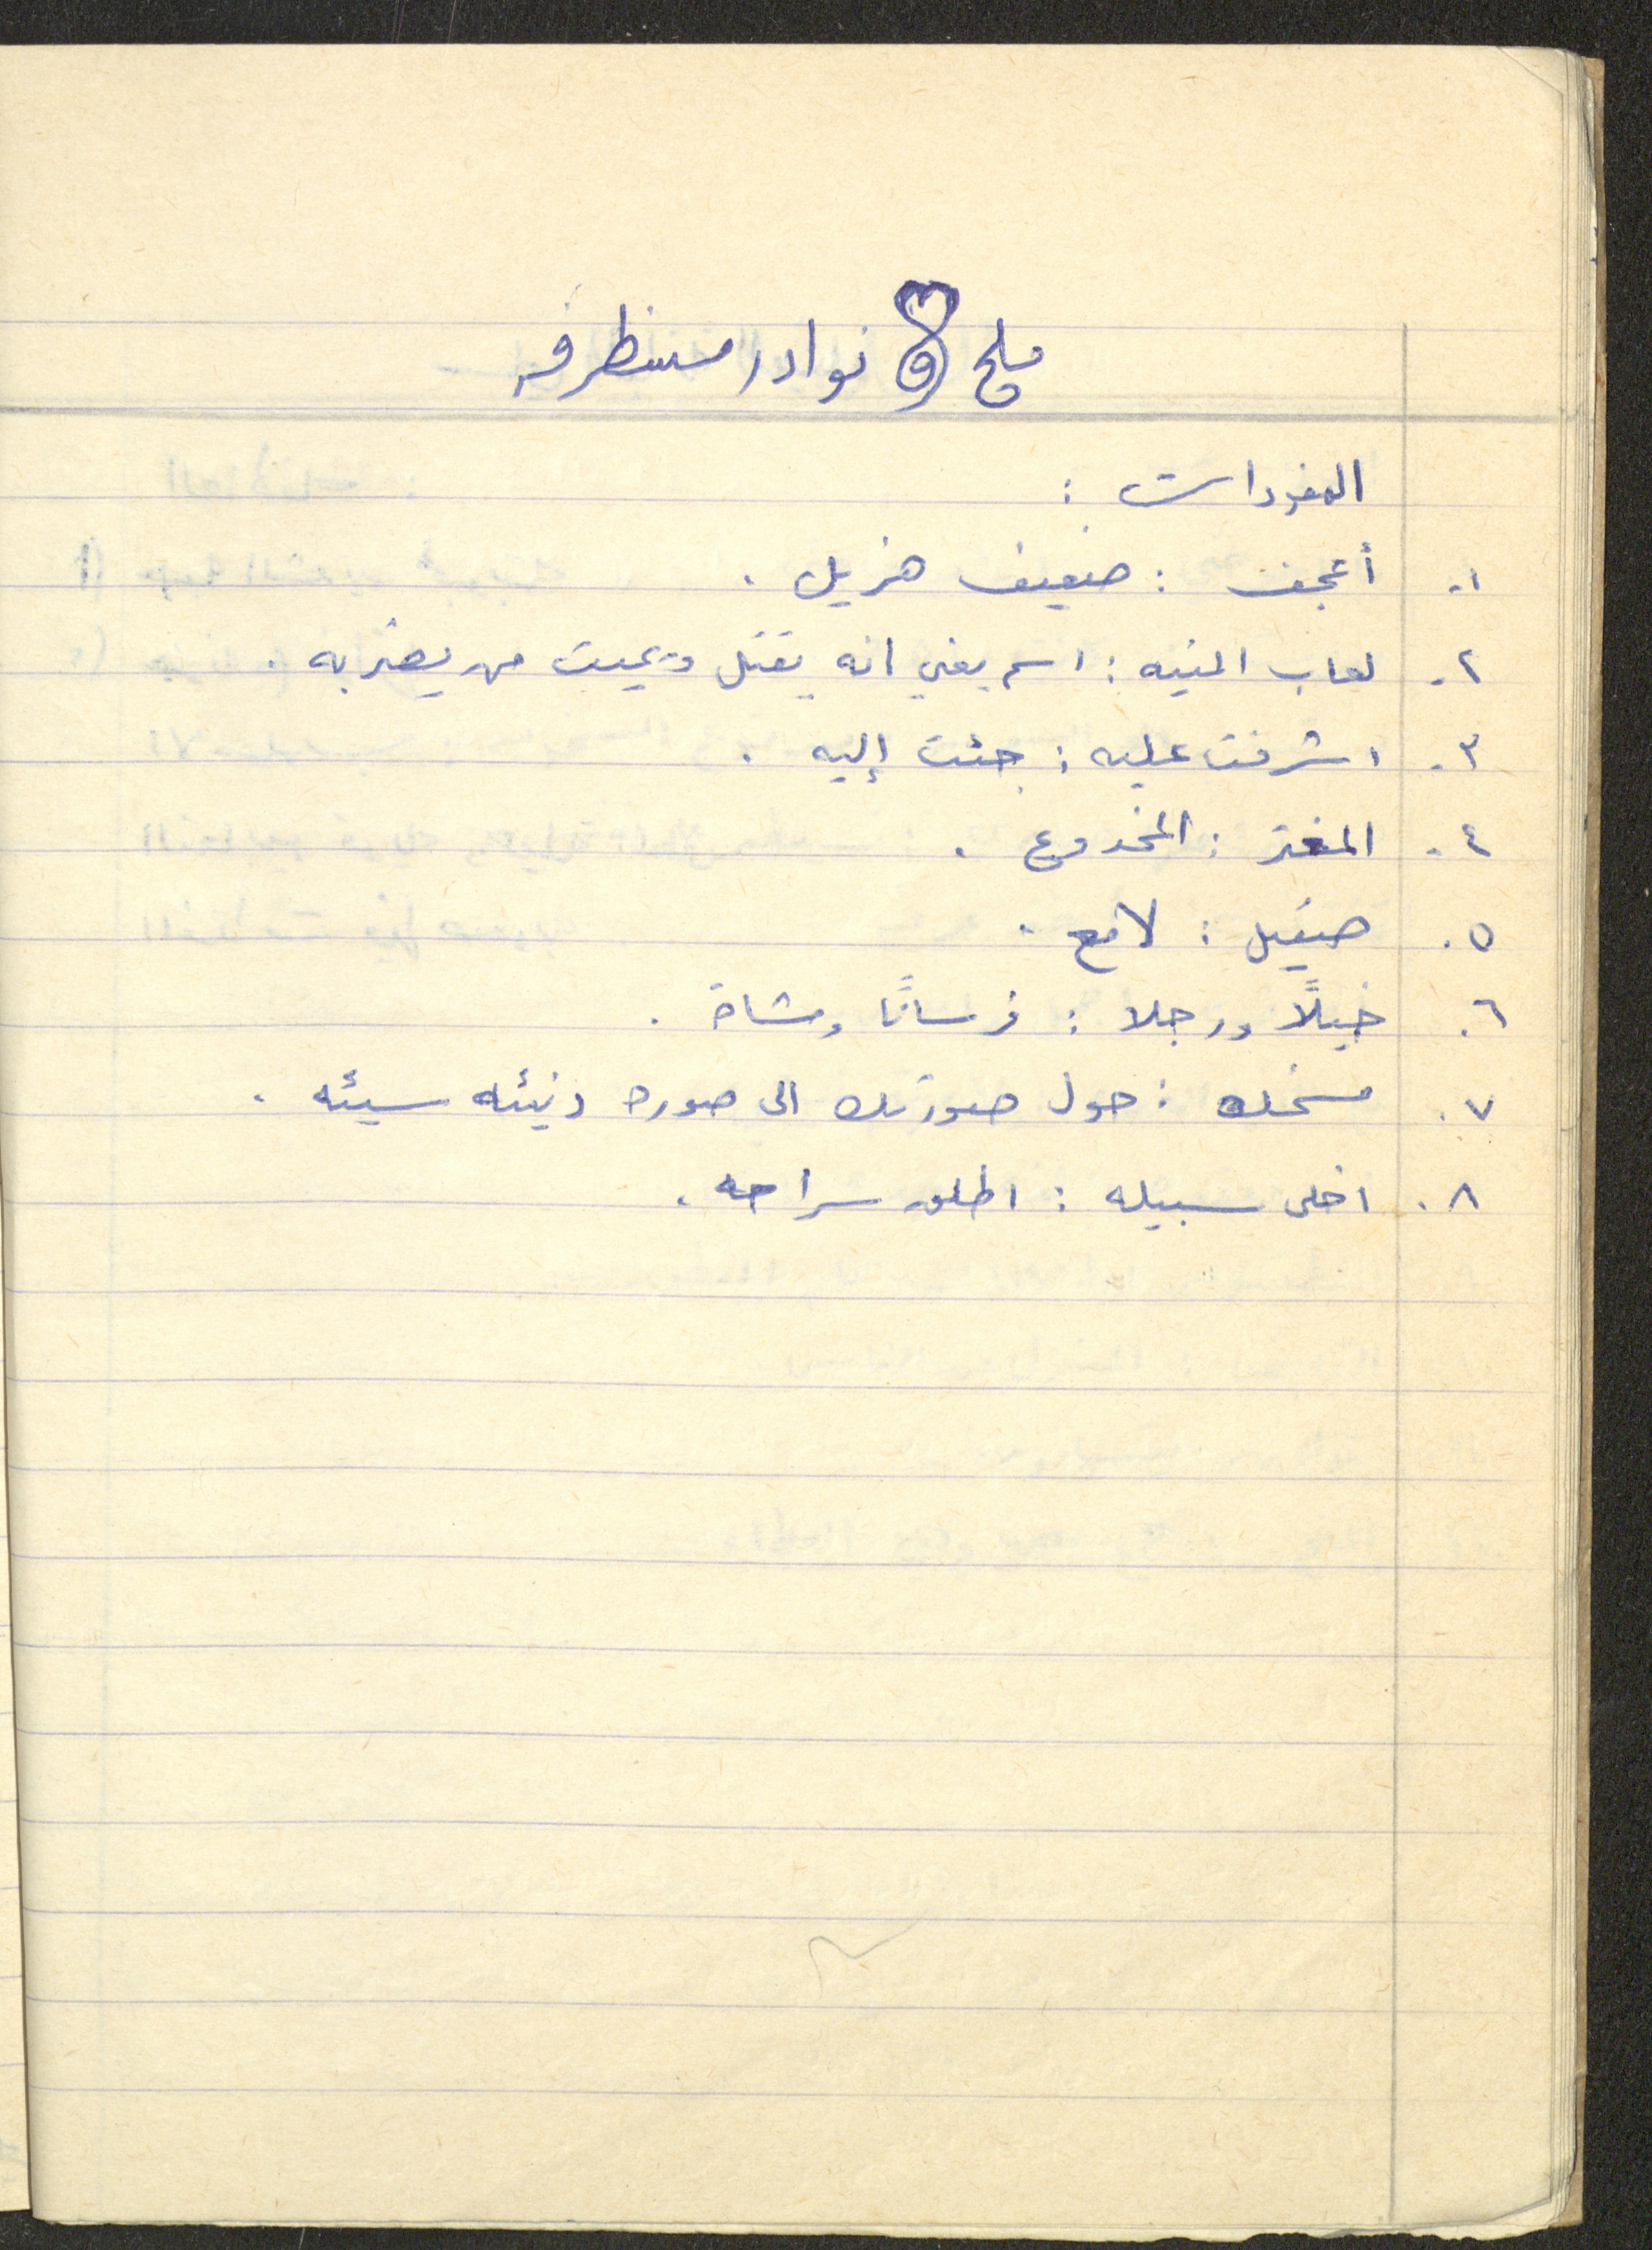 ملح و نوادر مستظرفه
المفردات :
١. أعجف : ضعيف هزيل .
٢. لعاب المنيه : اسم يعني انه يقتل ويميت من يضربه .
٣. اشرفت عليه : جئت إليه .
٤. المغتر : المخدوع .
٥. صقيل : لامع .
٦. خيلاً ورجلا : فرسانًا ومشاة .
٧. مسخك : حول صورتك الى صوره دنيئه سيئه .
٨. اخلى سبيله : اطلق سراحه .